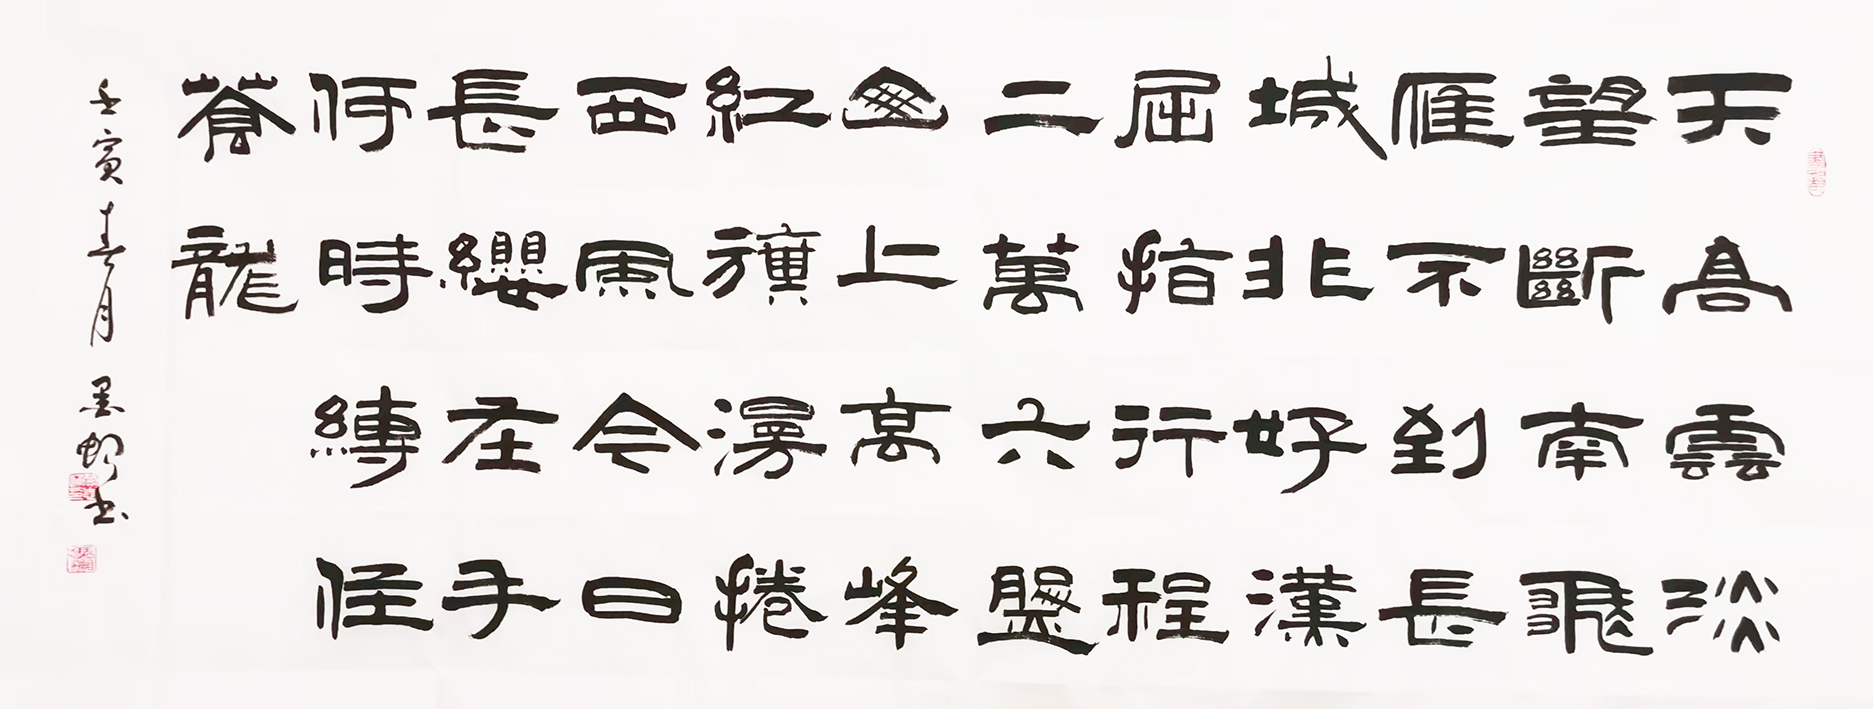 天高雲淡
望斷南飛
雁不到長
城非好漢
屈指行程
二萬六盤
山上高峰
紅旗漫捲
西風今日
長纓在手
何時縛住
蒼龍
壬寅春月 墨书